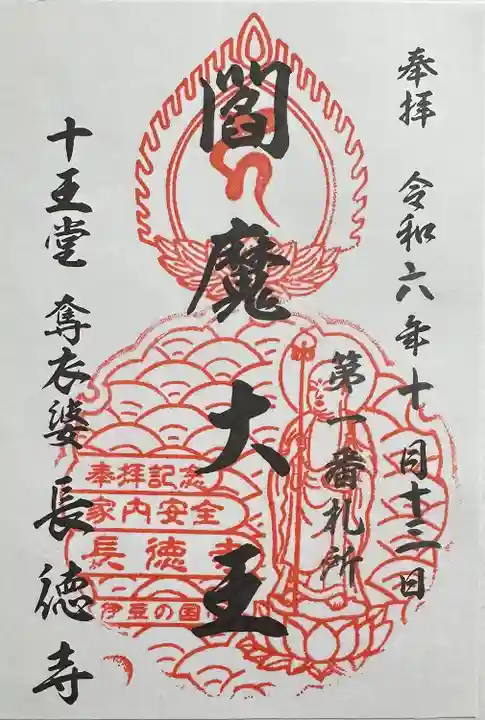 奉拝 令和六年十月十三日
第一番札所
閻魔大王
奉拝記念
家内安全
長徳寺
伊豆の国
十王堂 奪衣婆 長徳寺